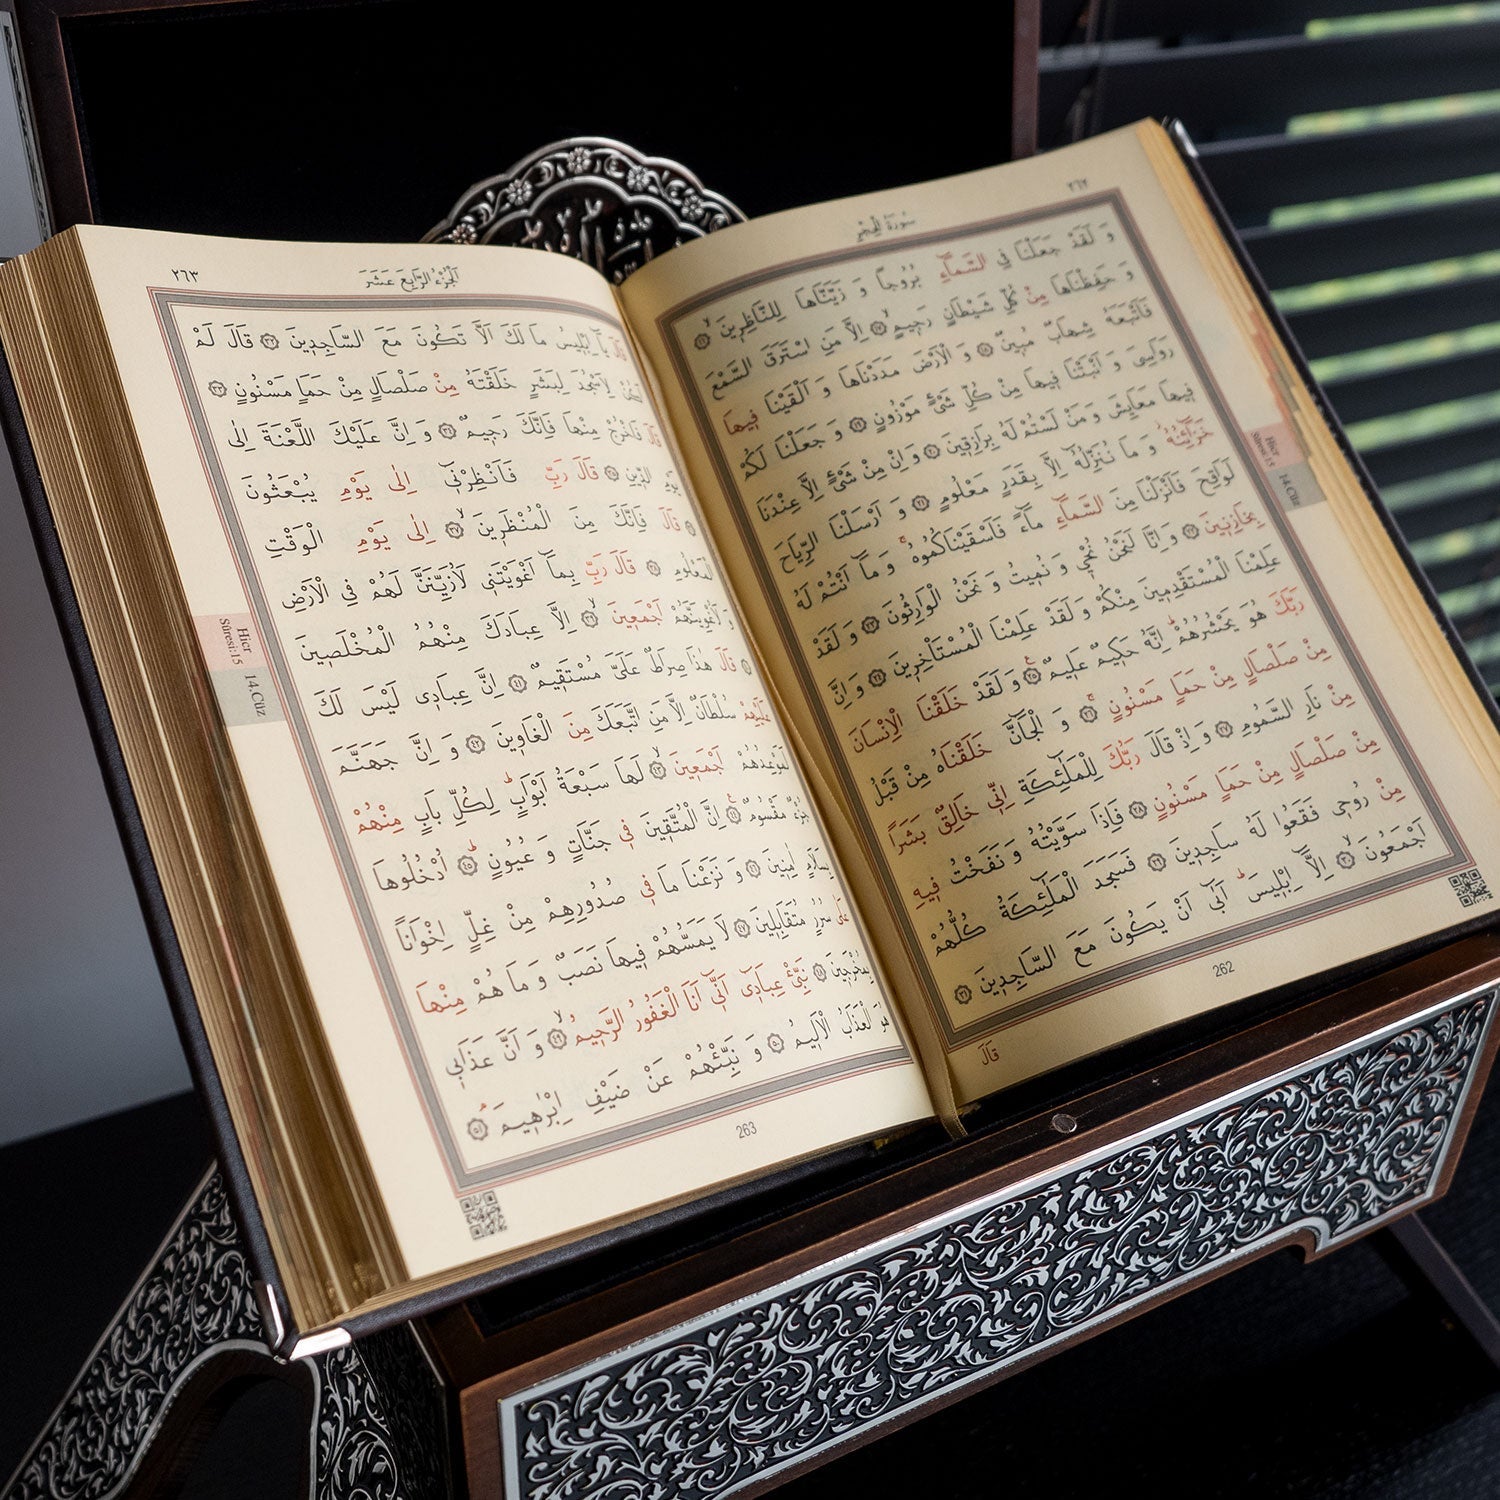 ٢٦٢
سُورَةُ الْحِجْرِ
وَ لَقَدْ جَعَلْنَا فِي السَّمَٓاءِ بُرُوجًا وَ زَيَّنَّاهَا لِلنَّاظِرٖينَۙ ﴿١٦﴾
وَ حَفِظْنَاهَا مِنْ كُلِّ شَيْطَانٍ رَجٖيمٍۙ ﴿١٧﴾ اِلَّا مَنِ اسْتَرَقَ السَّمْعَ
فَاَتْبَعَهُ شِهَابٌ مُبٖينٌ ﴿١٨﴾ وَ الْاَرْضَ مَدَدْنَاهَا وَ اَلْقَيْنَا فٖيهَا
رَوَاسِيَ وَ اَنْبَتْنَا فٖيهَا مِنْ كُلِّ شَيْءٍ مَوْزُونٍ ﴿١٩﴾ وَ جَعَلْنَا لَكُمْ
فٖيهَا مَعَايِشَ وَ مَنْ لَسْتُمْ لَهُ بِرَازِقٖينَ ﴿٢٠﴾ وَ اِنْ مِنْ شَيْءٍ اِلَّا عِنْدَنَا
خَزَٓائِنُهُ وَ مَا نُنَزِّلُهُٓ اِلَّا بِقَدَرٍ مَعْلُومٍ ﴿٢١﴾ وَ اَرْسَلْنَا الرِّيَاحَ
لَوَاقِحَ فَاَنْزَلْنَا مِنَ السَّمَٓاءِ مَٓاءً فَاَسْقَيْنَاكُمُوهُۚ وَ مَٓا اَنْتُمْ لَهُ
بِخَازِنٖينَ ﴿٢٢﴾ وَ اِنَّا لَنَحْنُ نُحْيٖ وَ نُمٖيتُ وَ نَحْنُ الْوَارِثُونَ ﴿٢٣﴾ وَ لَقَدْ
عَلِمْنَا الْمُسْتَقْدِمٖينَ مِنْكُمْ وَ لَقَدْ عَلِمْنَا الْمُسْتَأْخِرٖينَ ﴿٢٤﴾ وَ اِنَّ
رَبَّكَ هُوَ يَحْشُرُهُمْؕ اِنَّهُ حَكٖيمٌ عَلٖيمٌ ﴿٢٥﴾ وَ لَقَدْ خَلَقْنَا الْاِنْسَانَ
مِنْ صَلْصَالٍ مِنْ حَمَاٍ مَسْنُونٍۚ ﴿٢٦﴾ وَ الْجَٓانَّ خَلَقْنَاهُ مِنْ قَبْلُ
مِنْ نَارِ السَّمُومِ ﴿٢٧﴾ وَ اِذْ قَالَ رَبُّكَ لِلْمَلٰٓئِكَةِ اِنّٖي خَالِقٌ بَشَرًا
مِنْ صَلْصَالٍ مِنْ حَمَاٍ مَسْنُونٍ ﴿٢٨﴾ فَاِذَا سَوَّيْتُهُ وَ نَفَخْتُ فٖيهِ
مِنْ رُوحٖي فَقَعُوا لَهُ سَاجِدٖينَ ﴿٢٩﴾ فَسَجَدَ الْمَلٰٓئِكَةُ كُلُّهُمْ
اَجْمَعُونَۙ ﴿٣٠﴾ اِلَّٓا اِبْلٖيسَؕ اَبٰٓى اَنْ يَكُونَ مَعَ السَّاجِدٖينَ ﴿٣١﴾
قَالَ
262
Hicr
Sûresi:15
14.Cüz
٢٦٣
اَلْجُزْءُ الرَّابِعَ عَشَرَ
قَالَ يَٓا اِبْلٖيسُ مَا لَكَ اَلَّا تَكُونَ مَعَ السَّاجِدٖينَ ﴿٣٢﴾ قَالَ لَمْ
اَكُنْ لِاَسْجُدَ لِبَشَرٍ خَلَقْتَهُ مِنْ صَلْصَالٍ مِنْ حَمَاٍ مَسْنُونٍ ﴿٣٣﴾
قَالَ فَاخْرُجْ مِنْهَا فَاِنَّكَ رَجٖيمٌۙ ﴿٣٤﴾ وَ اِنَّ عَلَيْكَ اللَّعْنَةَ اِلٰى
يَوْمِ الدّٖينِ ﴿٣٥﴾ قَالَ رَبِّ فَاَنْظِرْنٖٓي اِلٰى يَوْمِ يُبْعَثُونَ
﴿٣٦﴾ قَالَ فَاِنَّكَ مِنَ الْمُنْظَرٖينَۙ ﴿٣٧﴾ اِلٰى يَوْمِ الْوَقْتِ
الْمَعْلُومِ ﴿٣٨﴾ قَالَ رَبِّ بِمَٓا اَغْوَيْتَنٖي لَاُزَيِّنَنَّ لَهُمْ فِي الْاَرْضِ
وَ لَاُغْوِيَنَّهُمْ اَجْمَعٖينَۙ ﴿٣٩﴾ اِلَّا عِبَادَكَ مِنْهُمُ الْمُخْلَصٖينَ
﴿٤٠﴾ قَالَ هٰذَا صِرَاطٌ عَلَيَّ مُسْتَقٖيمٌ ﴿٤١﴾ اِنَّ عِبَادٖي لَيْسَ لَكَ
عَلَيْهِمْ سُلْطَانٌ اِلَّا مَنِ اتَّبَعَكَ مِنَ الْغَاوٖينَ ﴿٤٢﴾ وَ اِنَّ جَهَنَّمَ
لَمَوْعِدُهُمْ اَجْمَعٖينَۙ ﴿٤٣﴾ لَهَا سَبْعَةُ اَبْوَابٍؕ لِكُلِّ بَابٍ مِنْهُمْ
جُزْءٌ مَقْسُومٌ ﴿٤٤﴾ اِنَّ الْمُتَّقٖينَ فٖي جَنَّاتٍ وَ عُيُونٍؕ ﴿٤٥﴾ اُدْخُلُوهَا
بِسَلَامٍ اٰمِنٖينَ ﴿٤٦﴾ وَ نَزَعْنَا مَا فٖي صُدُورِهِمْ مِنْ غِلٍّ اِخْوَانًا
عَلٰى سُرُرٍ مُتَقَابِلٖينَ ﴿٤٧﴾ لَا يَمَسُّهُمْ فٖيهَا نَصَبٌ وَ مَا هُمْ مِنْهَا
بِمُخْرَجٖينَ ﴿٤٨﴾ نَبِّئْ عِبَادٖٓي اَنّٖٓي اَنَا الْغَفُورُ الرَّحٖيمُۙ ﴿٤٩﴾ وَ اَنَّ عَذَابٖي
هُوَ الْعَذَابُ الْاَلٖيمُ ﴿٥٠﴾ وَ نَبِّئْهُمْ عَنْ ضَيْفِ اِبْرٰهٖيمَۘ ﴿٥١﴾
263
Hicr
Sûresi:15
14.Cüz